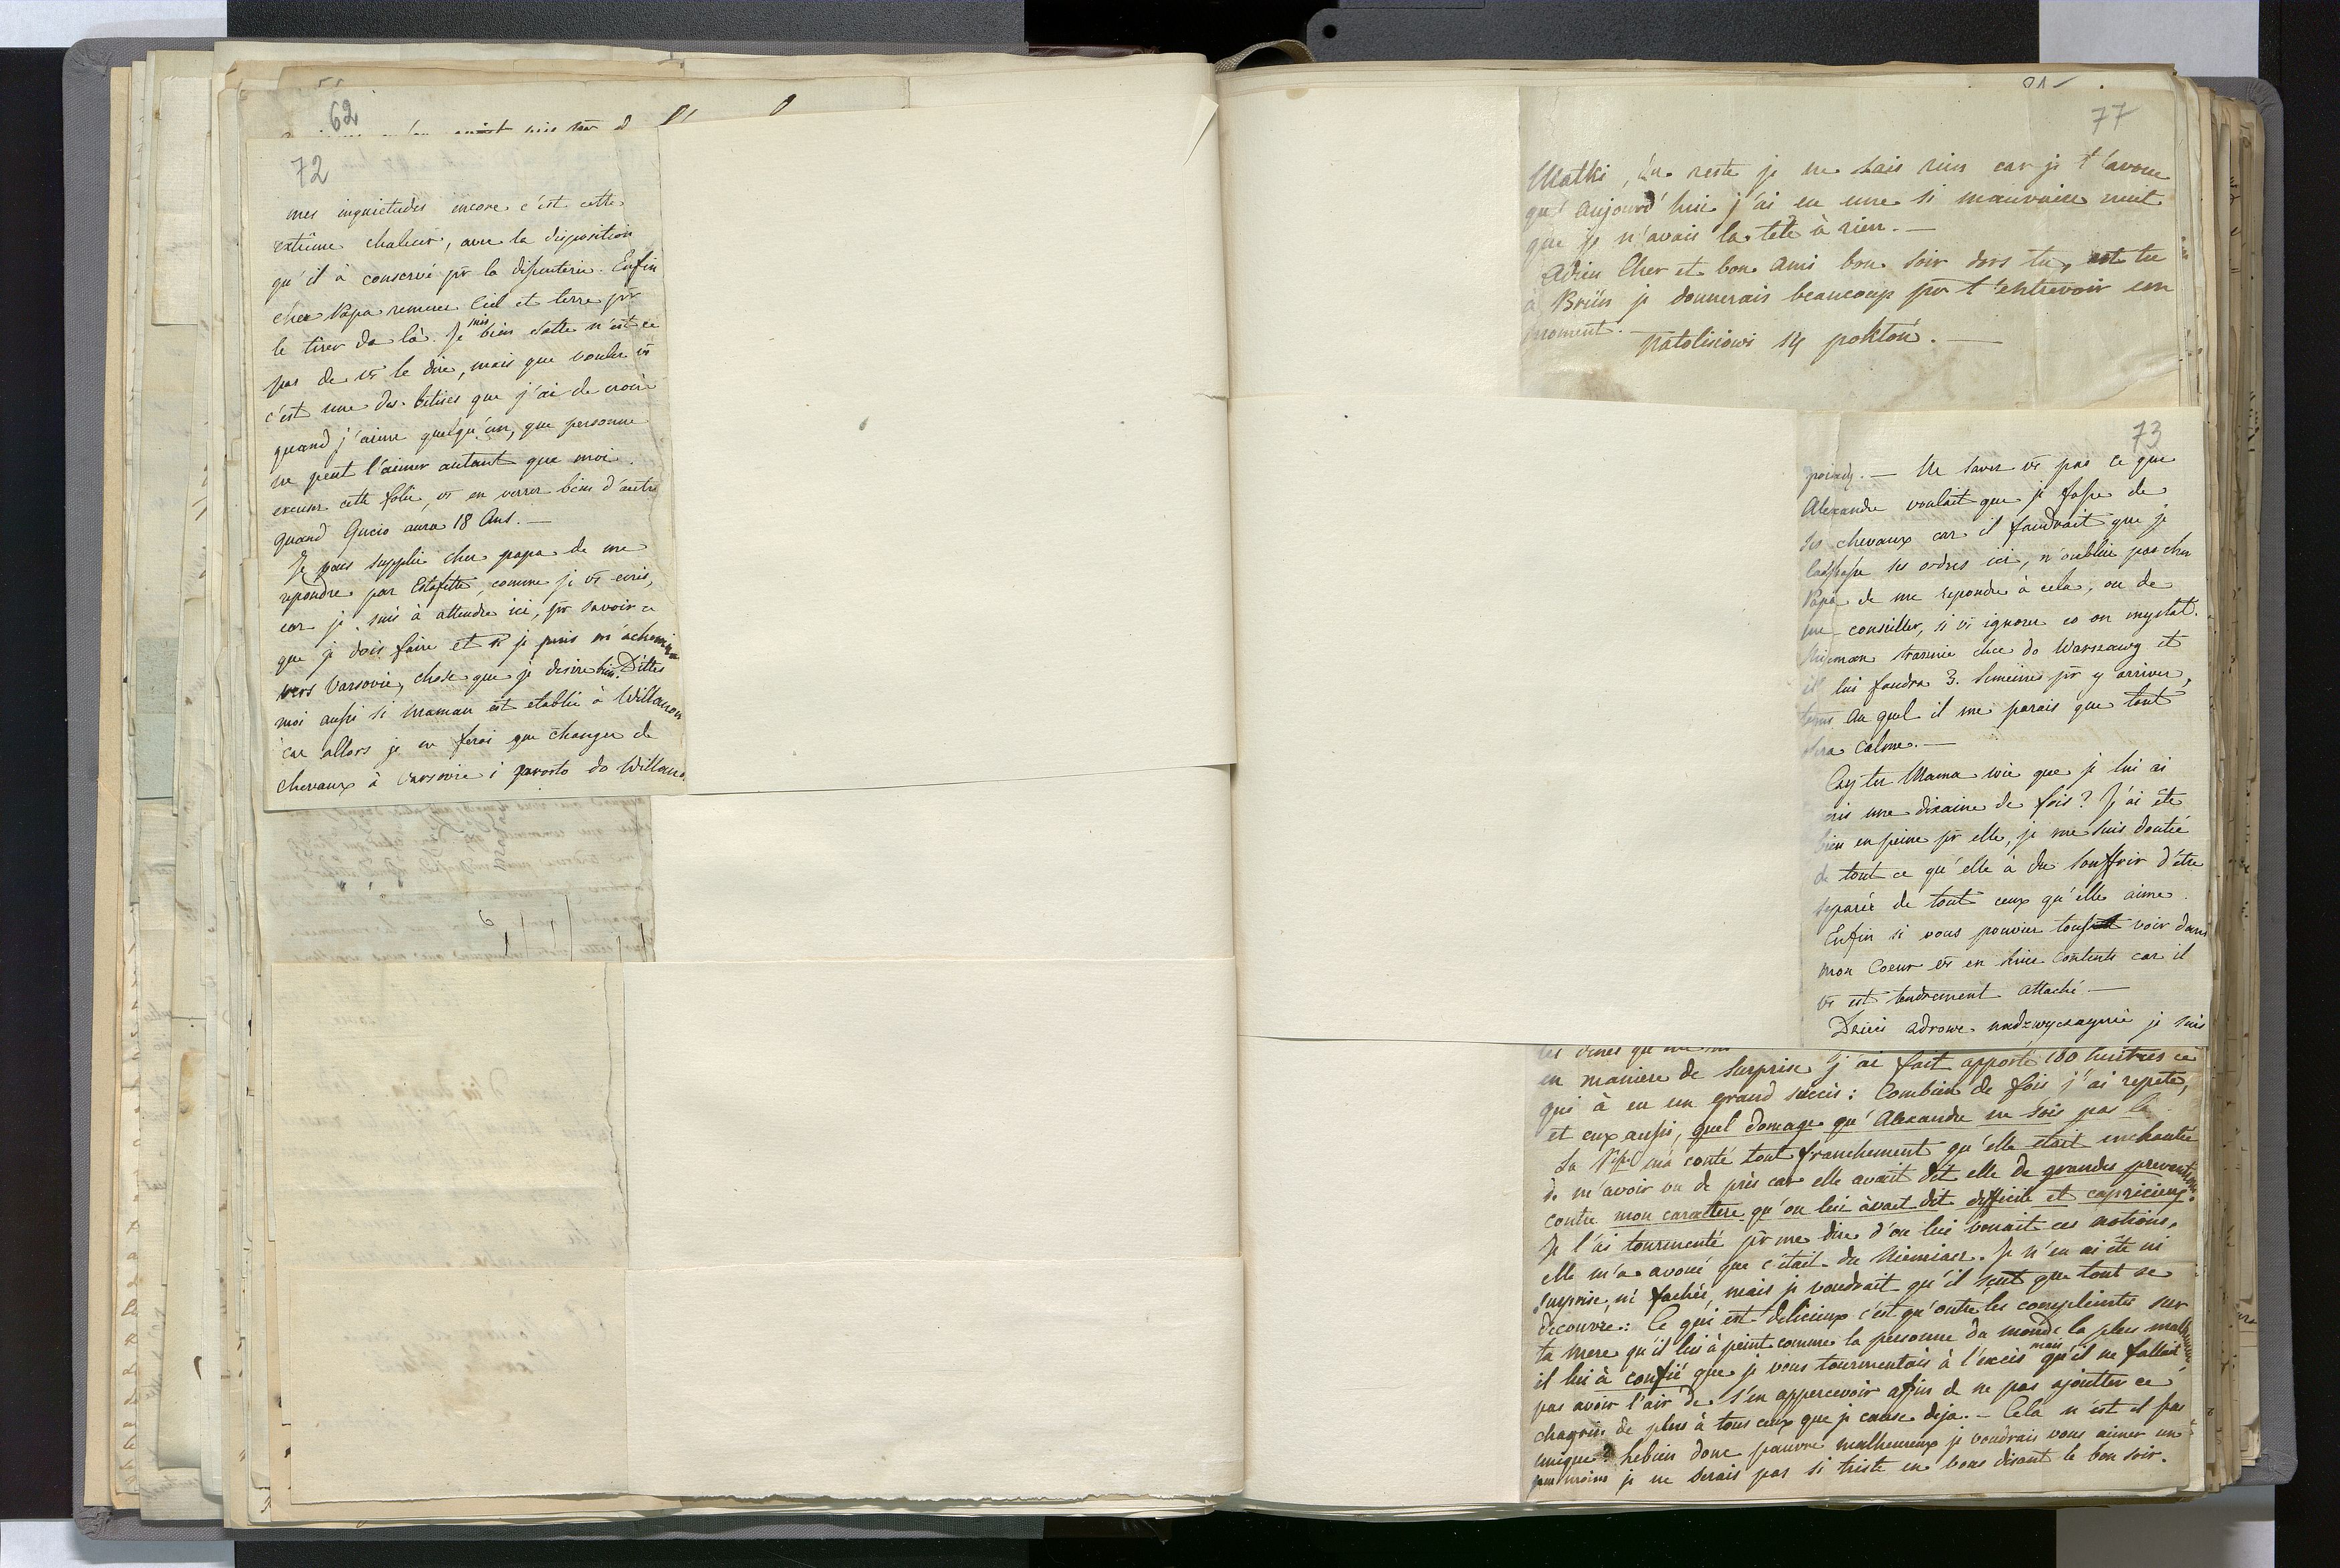 62
72
mes inquietudes encore c'est cette
extrême chaleur, avec la disposition
qu'il à conservé pr la disenterie. Enfin
cher Papa remuer Ciel et terre pr
le tirer da là. Je suis bien sotte n'est ce
pas de vs le dire, mais que voulez vs
c'est une des bétises que j'ai de croire
quand j'aime quelqu'un, que personne
ne peut l'aimer autant que moi.
excuser cette folie, vs en verrer bien d'autre
quand Gucio aura 18 Ans. —
Je vous supplie cher papa de me
repondre par Estafette, comme je vs ecris,
car je suis à attendre ici, pr savoir ce
que je dois faire et si je puis m'achemine
vers Varsovie, chose que je desire bien. Dittes
moi aussi si Maman est etablie à Willanow
car allors je ne ferai que changer de
chevaux à Varsovie i prosto do Willano.
77
Matki, du reste je ne sais rien car je t'avoue
qu'aujourd'hui j'ai eu une si mauvaise nuit
que je n'avais la tete à rien. —
Adieu Cher et bon Ami bon soir dors tu, est tu
à Brün je donnerais beaucoup pr t'entrevoir un
moment.
Natolisiowi sy pokton. —
73
— Ne saver vs pas ce que
Alexandre voulait que je fasse de
ses chevaux car il faudrait que je
laissasse ses ordres ici, n'oublie pas cher
Papa de me repondre à cela, ou de
me conseiller, si vs ignorer co on myslat.
chce do Warszawy et
il lui faudra 3. Semeines pr y arriver,
tems au quel il me parais que tout
sera calme. —
Czy tez Mama wie que je lui ai
ecris une dixaine de fois? J'ai éte
bien en peine pr elle, je me suis doutée
de tout ce qu'elle à du souffrir d'être
separée de tout ceux qu'elle aime.
Enfin si vous pouvier tous voir dans
mon Coeur vs en serier contents car il
vs est tendrement attaché. —
Dzieci zdrowe nadzwyczaynie je suis
en maniere de surprise j'ai fait apporté 100 huitres ce
qui à eu un grand succès: Combien de fois j'ai repeté,
et eux aussi, quel domage qu'Alexandre ne sois pas la
La Psse m'a conté tout franchement qu'elle etait enchantée
de m'avoir vu de près car elle avait dit elle de grandes prevantions
contre mon caractere qu'on lui avait dit difficile et capricieux.
Je l'ai tourmenté pr me dire d'ou lui venait ces notions,
elle m'a avoué que c'était du Niemiaer. Je n'en ai éte ni
surprise, ni fachée, mais je voudrait qu'il sent que tout se
decouvre: Ce qui est delicieux c'est qu'outre les complaintes sur
ta Mere qu'il lui à peint comme la personne du monde la plus malheureuse,
il lui à confié que je vous tourmentais à l'excès mais qu'il ne fallait
pas avoir l'air de s'en appercevoir afin de ne pas ajoutter ce
chagrin de plus à tous ceux que je cause deja. — Cela n'est il pas
unique? hebien donc pauvre malheureux je voudrais vous aimer un
peu moins je ne serais pas si triste en vous disant le bon soir.